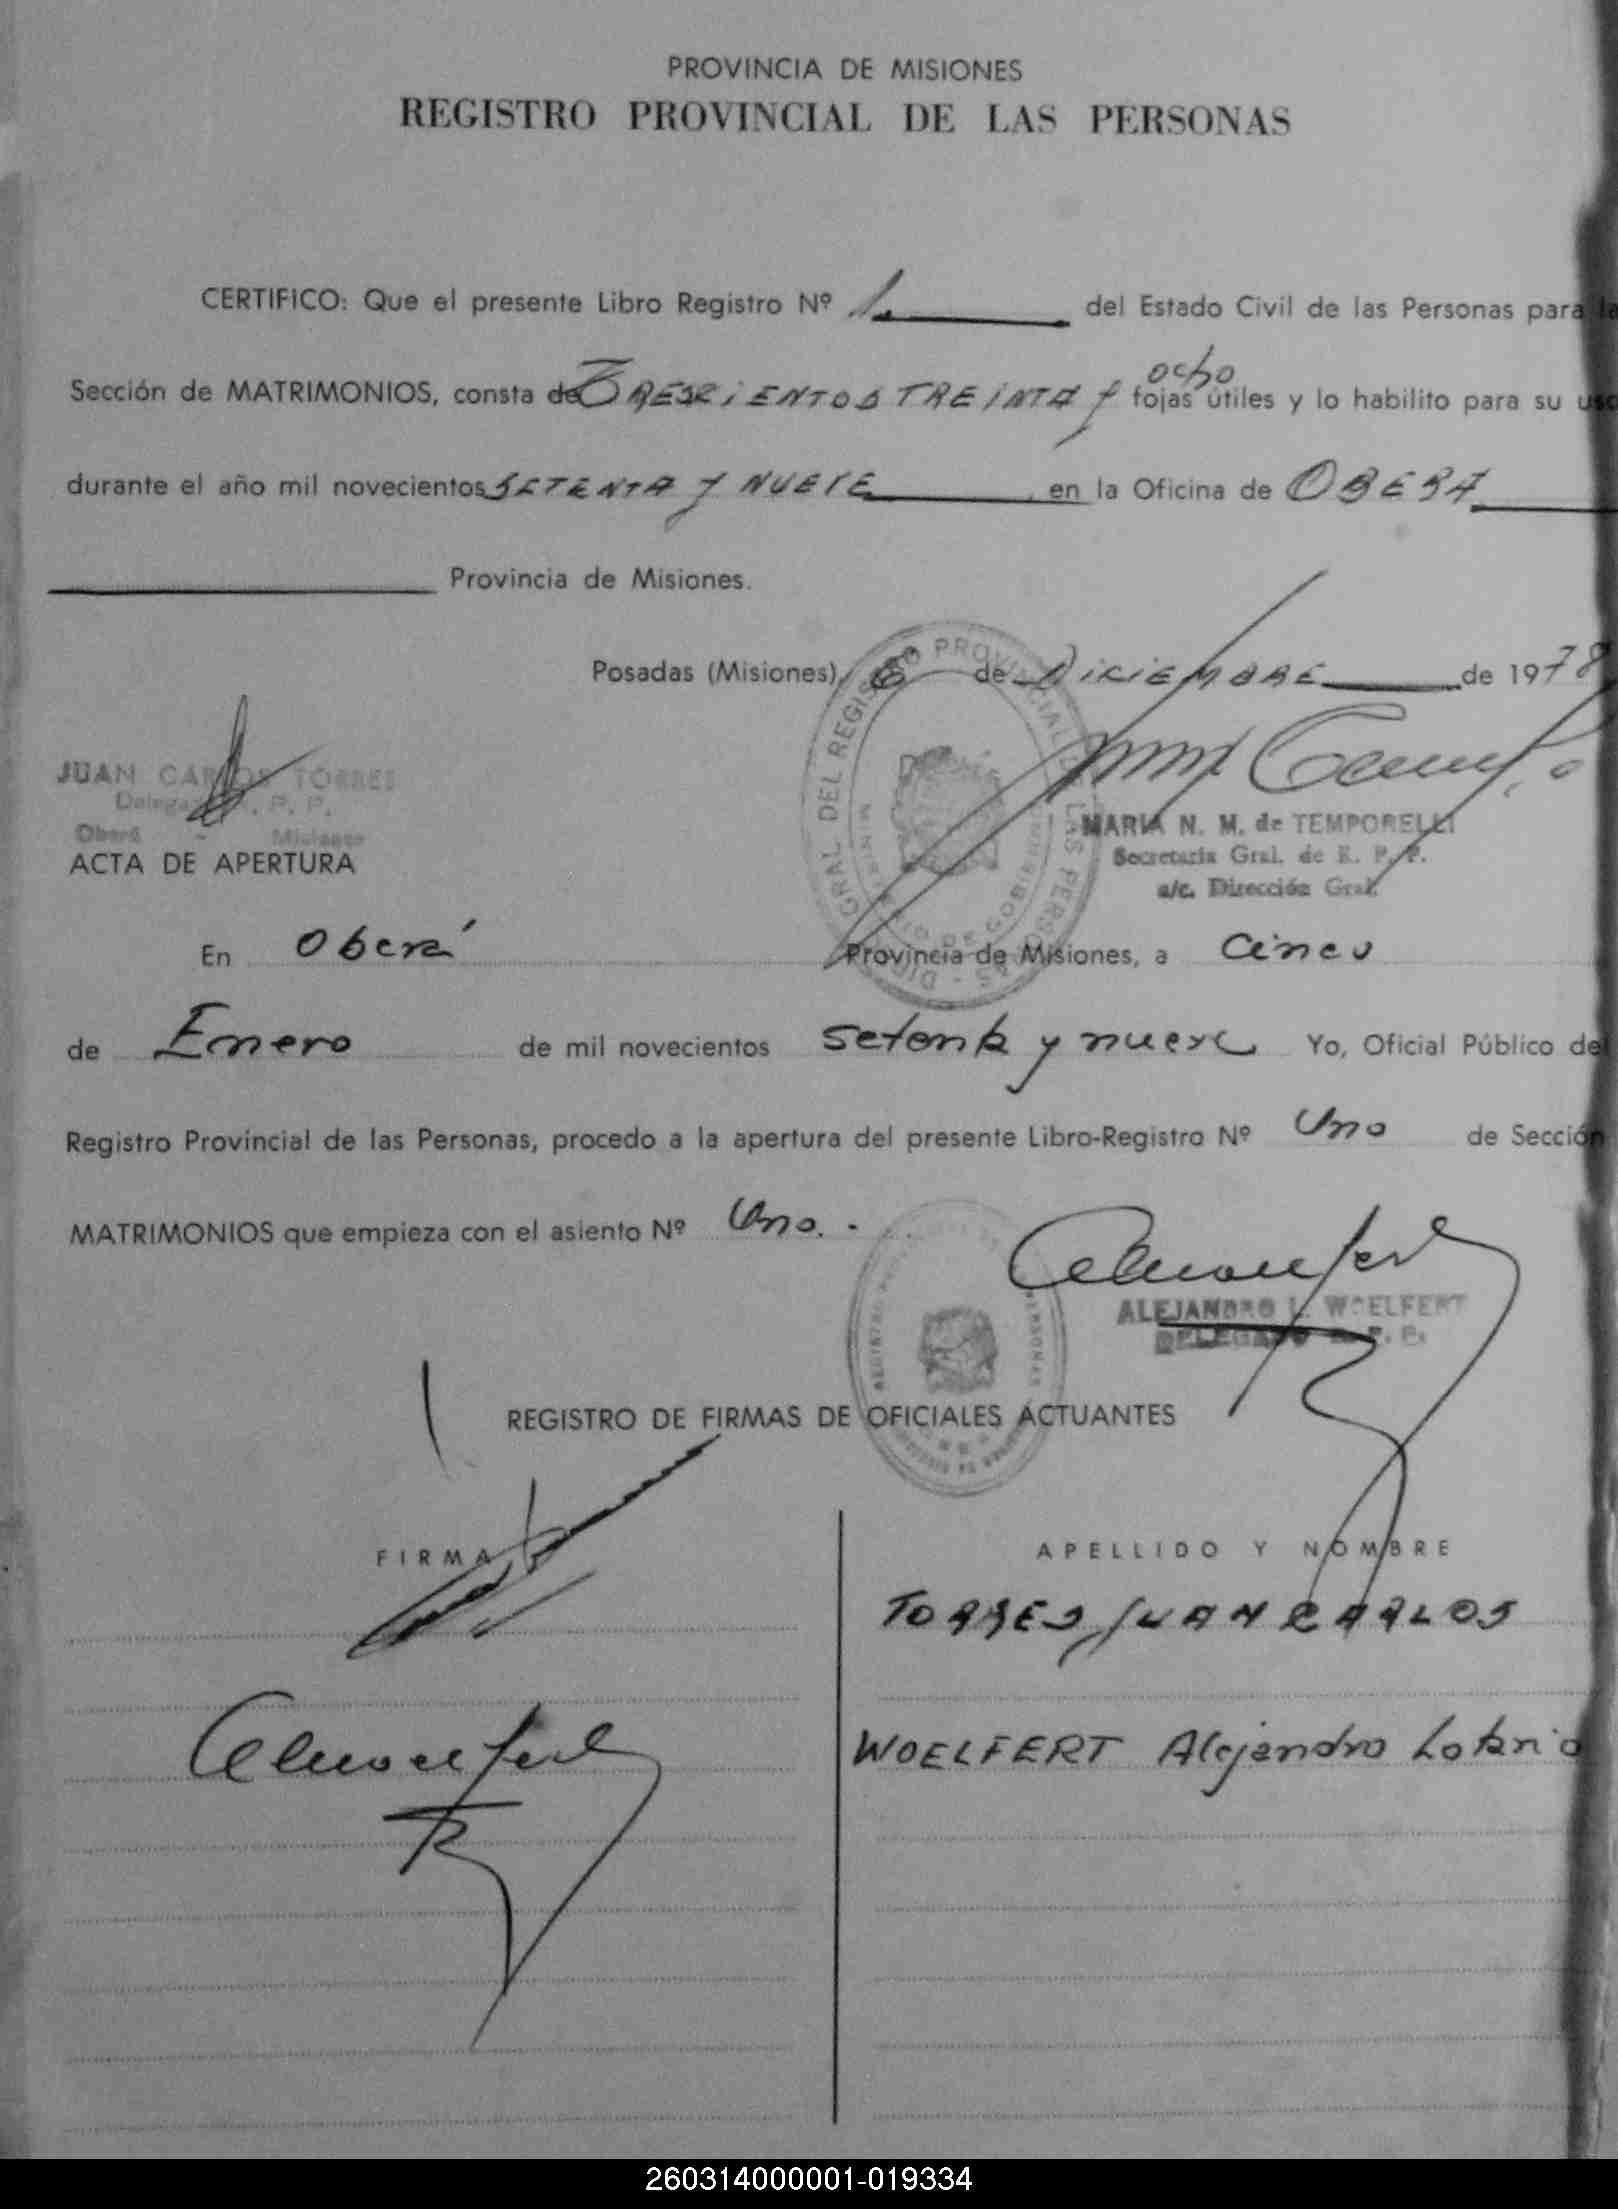 PROVINCIA DE MISIONES
REGISTRO PROVINCIAL DE LAS PERSONAS
CERTIFICO: Que el presente Libro Registro Nº 1 del Estado Civil de las Personas para la
ocho
Sección de MATRIMONIOS, consta de TRESCIENTOS TREINTA y fojas útiles y lo habilito para su uso
durante el año mil novecientos SETENTA Y NUEVE en la Oficina de OBERA
Provincia de Misiones.
Posadas (Misiones), 6 de DICIEMBRE de 1978
JUAN CARLOS TORRES
Delegado R. P. P.
Oberá - Misiones
MARIA N. M. de TEMPORELLI
Secretaria Gral. de R. P. P.
a/c. Dirección Gral.
DIREC. GRAL DEL REGISTRO PROVINCIAL DE LAS PERSONAS
MINISTERIO DE GOBIERNO
ACTA DE APERTURA
En Oberá Provincia de Misiones, a Cinco
de Enero de mil novecientos setenta y nueve Yo, Oficial Público del
Registro Provincial de las Personas, procedo a la apertura del presente Libro-Registro Nº Uno de Sección
MATRIMONIOS que empieza con el asiento Nº Uno. -
ALEJANDRO L. WOELFERT
DELEGADO R. P. P.
REGISTRO DE FIRMAS DE OFICIALES ACTUANTES
FIRMA APELLIDO Y NOMBRE
TORRES, JUAN CARLOS
WOELFERT Alejandro Lotario
260314000001-019334